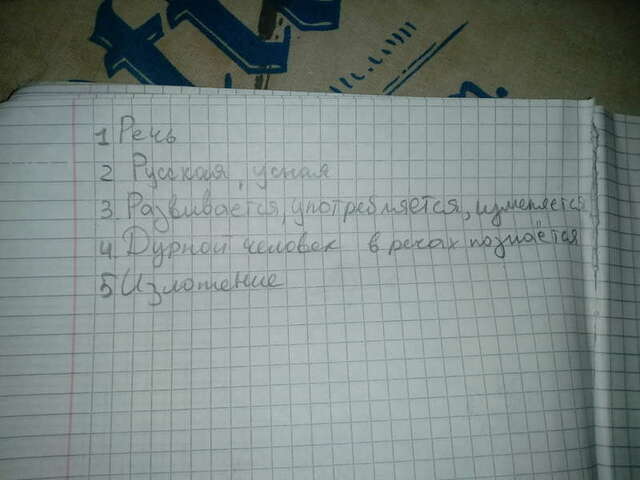 1 Речь
2 Русская, устная
3. Развивается, употребляется, изменяется
4. Дурной человек в речах познаётся
5 Изложение